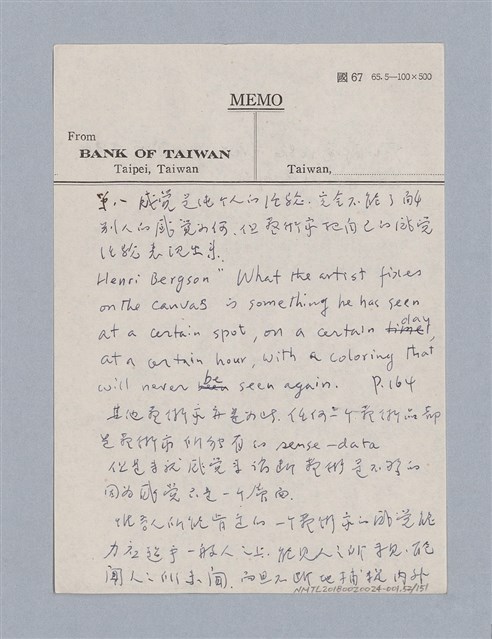 國 67 65.5—100×500
MEMO
From
BANK OF TAIWAN
Taipei, Taiwan
Taiwan,
第一 感覚是他个人的 経験. 完全不能了解
别人的感覚为何. 但藝術家把自己的感覚
経験表現出来.
Henri Bergson " What the artist fixes
on the canvas is something he has seen
at a certain spot, on a certain time day,
at a certain hour, with a coloring that
will never been be seen again. P.164
其他藝術家 是如此. 任何一个藝術品都
是藝術家所 有的 sense-data
但是 感覚来 断藝術是不够的
因为感覚只是一个 面.
我 人所能肯定的 一个藝術家的感覚能
力应超乎一般人之上. 能見人之所未見. 能
聞人之所未聞. 而且不断地捕 内外
NMTL20180020024-001.52/151